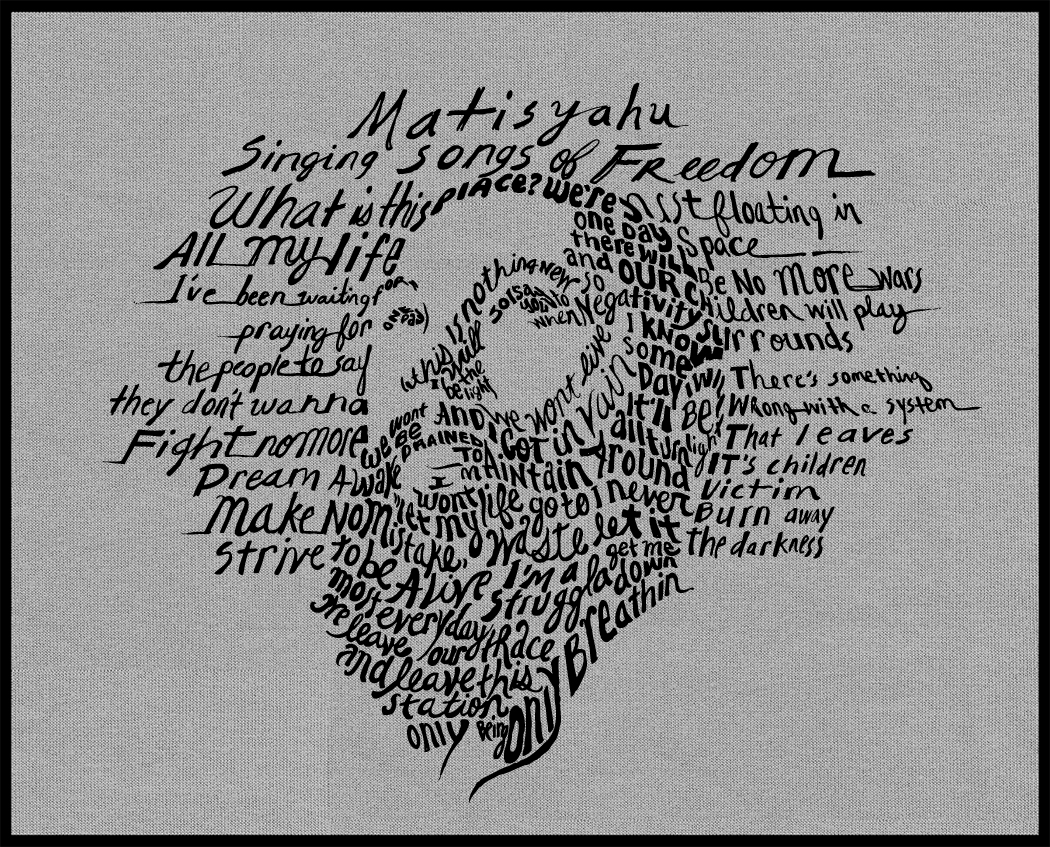 Matisyahu
Singing songs of Freedom
What is this place? We're just floating in
one Day Space
All my life there will Be No More wars
and OUR Children will play
I've been waiting for
nothing new
so
Negativity surrounds
praying for one day
when
I know
the people to say
this is
I will
be the
light
we wont live
some
Day
There's something
they don't wanna
in vain it'll BE! Wrong with a system
Fight no more we wont
BE
DRAINED
And I Got all turn That leaves
Dream Awake TO MAIN
Mountain Around light IT'S children
Make No
Mistake
I wont
let my life go to
waste I never Victim
let it Burn away
strive to be Alive I'm a
struggla get me
down
the darkness
most everyday
we leave
our trace Breathin
and leave this
station
only Being only